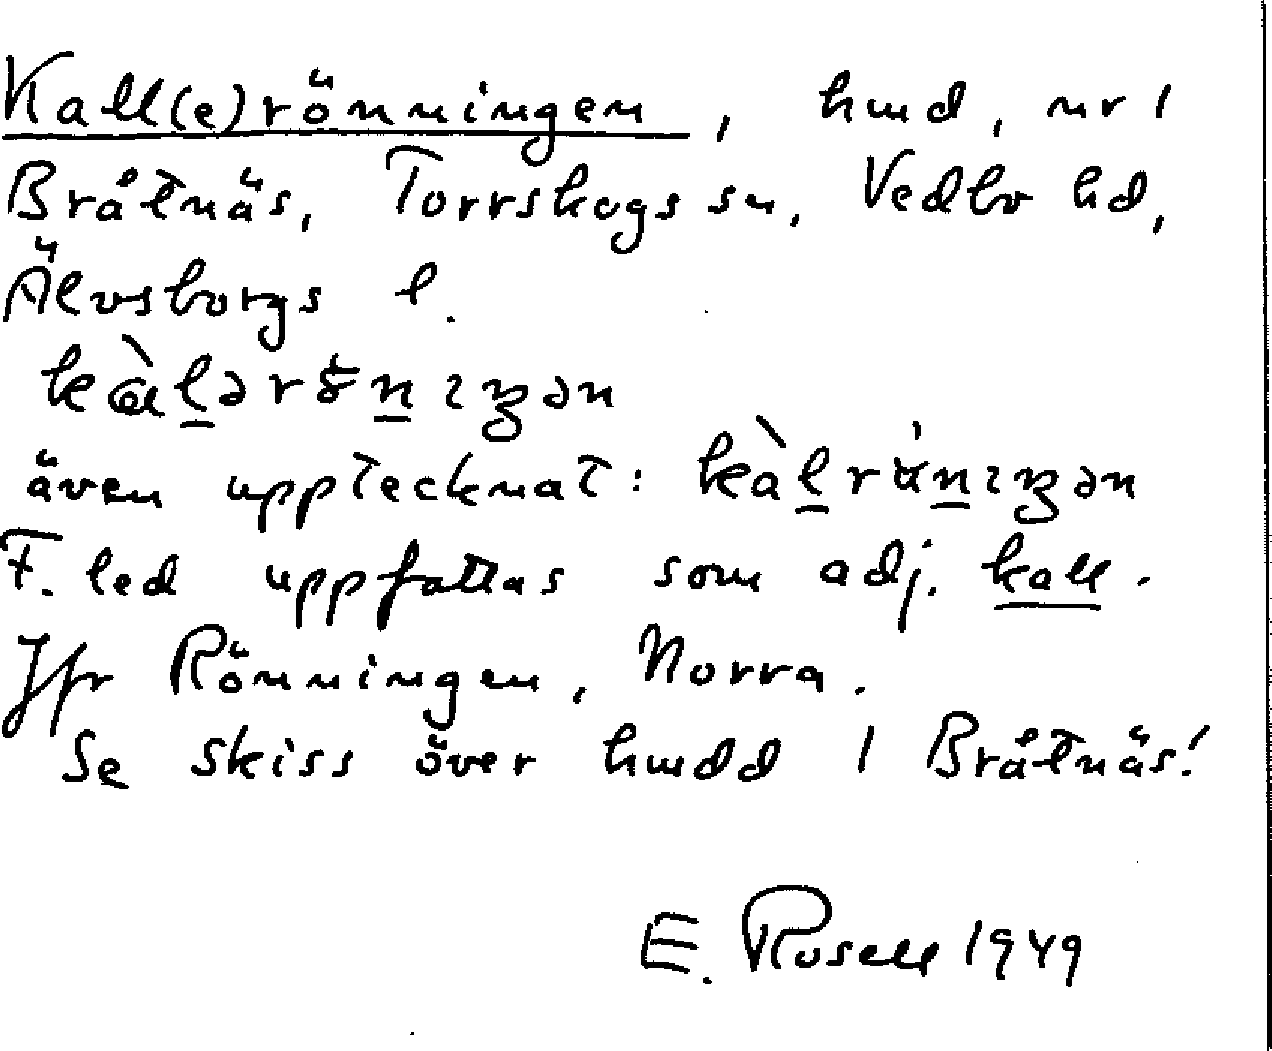 Kall(e)rönningen, hmd, nr 1
Bråtnäs, Torrskogs sn, Vedbo hd,
Älvsborgs l.
även upptecknat:
F. led uppfattas som adj. kall.
Jfr Rönningen, Norra.
Se skiss över hmdd 1 Bråtnäs!
E. Rosell 1949